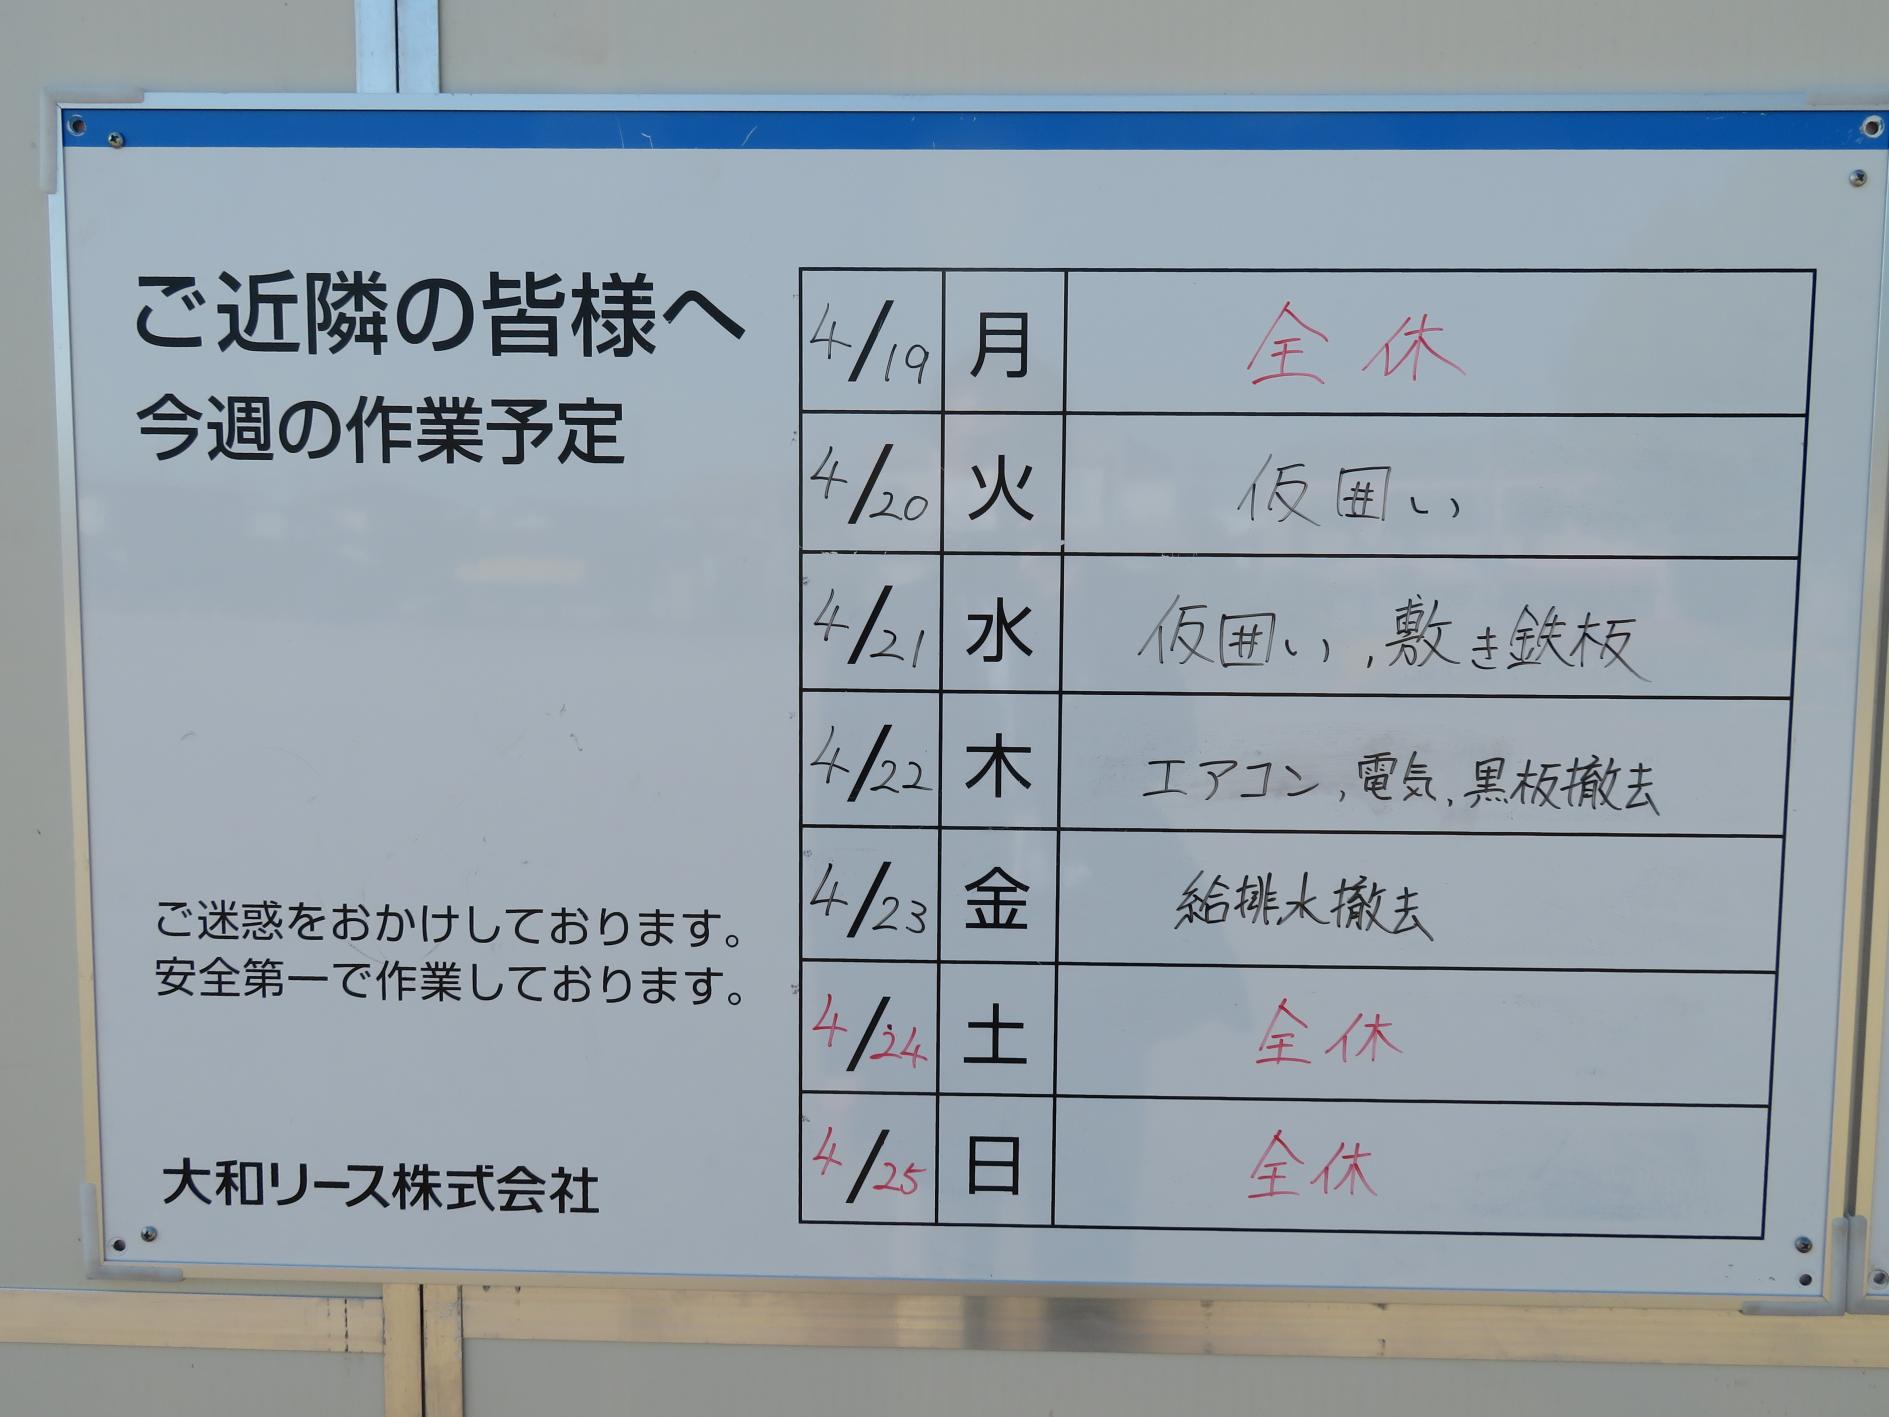 ご近隣の皆様へ
今週の作業予定
ご迷惑をおかけしております。
安全第一で作業しております。
大和リース株式会社
4/19 月 全休
4/20 火 仮囲い
4/21 水 仮囲い,敷き鉄板
4/22 木 エアコン,電気,黒板撤去
4/23 金 給排水撤去
4/24 土 全休
4/25 日 全休